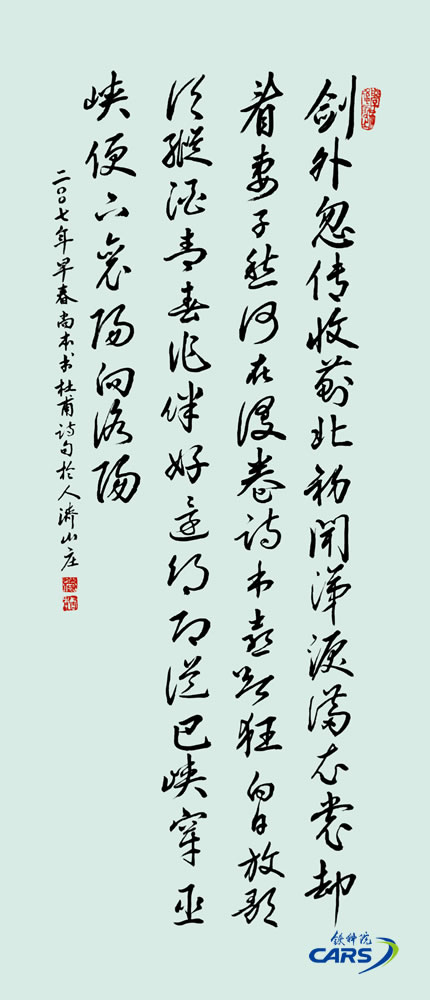 剑外忽传收蓟北初闻涕泪满衣裳却
看妻子愁何在漫卷诗书喜欲狂白日放歌
须纵酒青春作伴好还乡即从巴峡穿巫
峡便下襄阳向洛阳
二〇〇七年早春尚本书杜甫诗句於人济山庄
铁科院
CARS